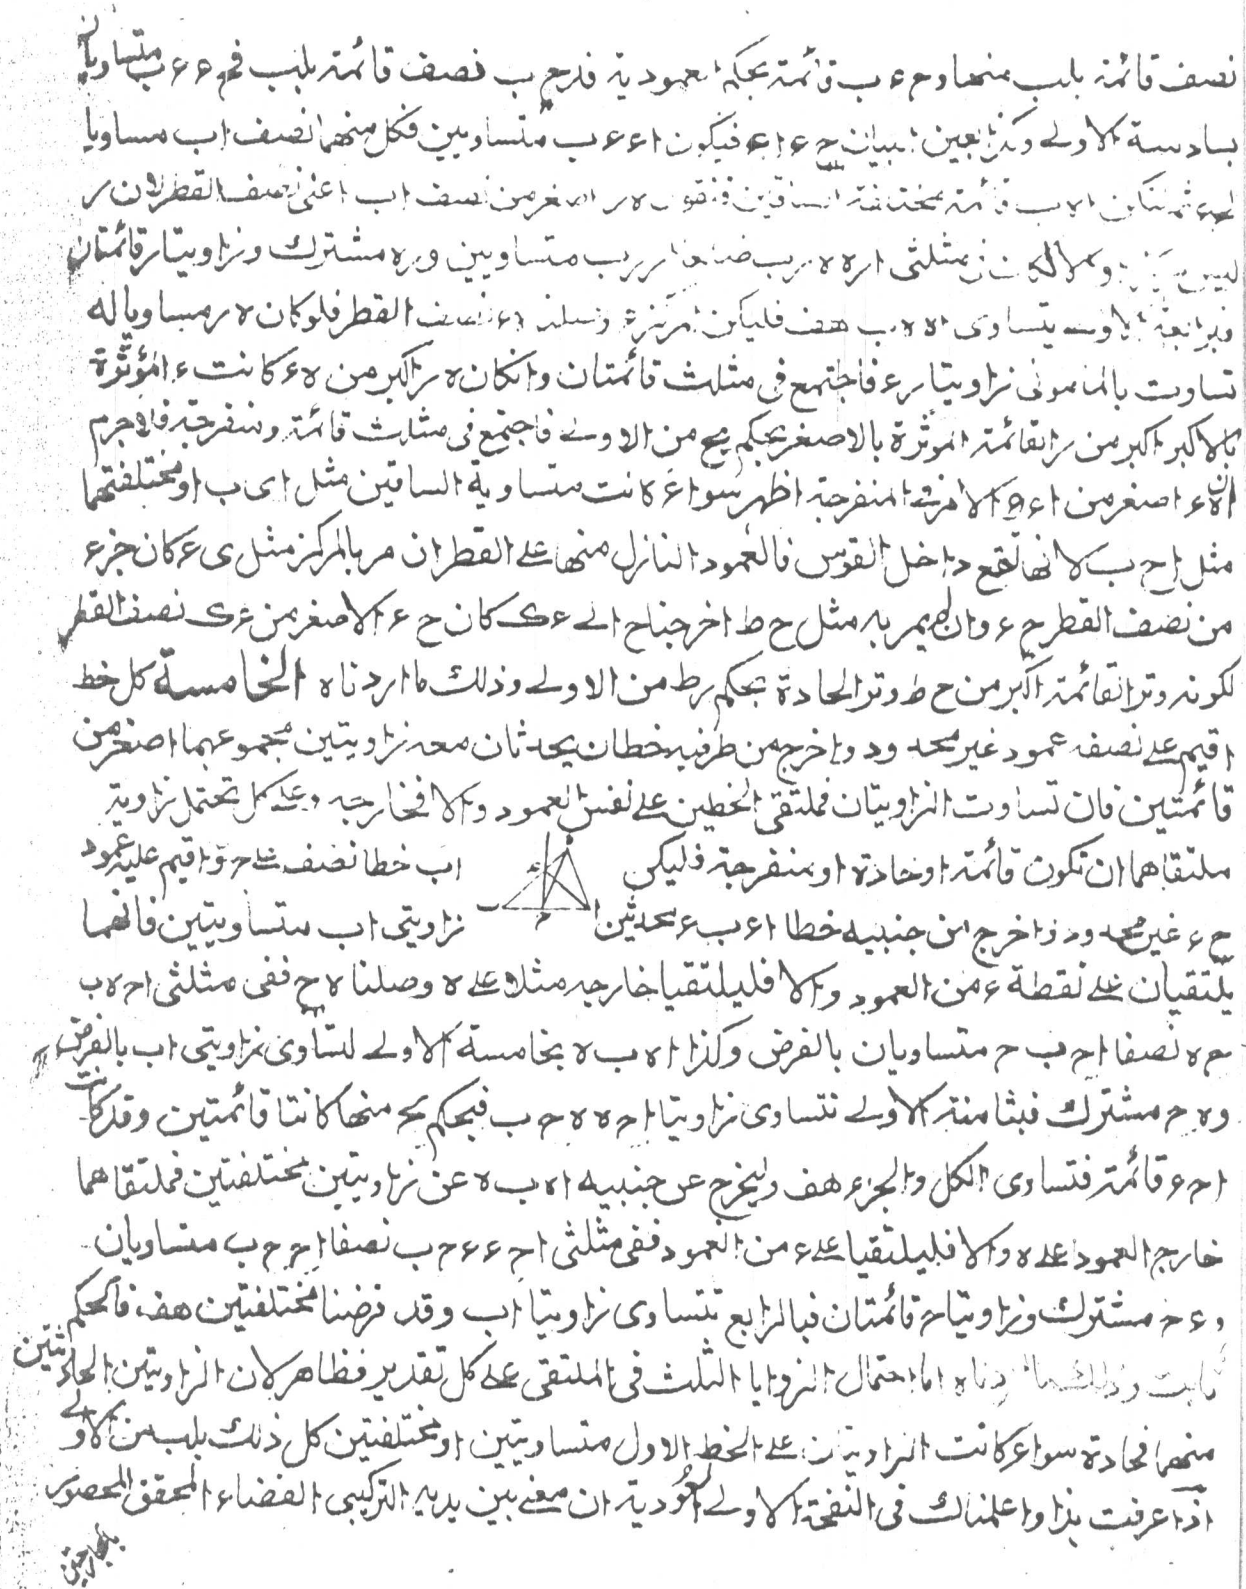 نصف قائمة بلب منها و ح ء ب قائمة بحكم العمودية فدرع ب نصف قائمة بلب فح ء ء ب متساويان
بسادسة الاولى وكذا بعين البيان ح ء ا ء فيكون ا ء ء ب متساويين فكل منهما نصف اب مساويا
لح ء ثم لتكن ا ه ب قائمة مختلفة الساقين فنقول ه ر اصغر من نصف اب اعنى نصف القطر لان ر
ليس والا لكان فى مثلثى ا ر ه ه ر ب ضلعا ا ر ر ب متساويين و ر ه مشترك وزاويتا ر قائمتان
فبرابعة الاولى يتساوى ا ه ه ب هف فليكن المركز ء نصف القطر فلو كان ه ر مساويا له
تساوت بالمامونى زاويتا ر ء فاجتمع فى مثلث قائمتان وان كان ه ر اكبر من ه ء كانت ء المؤثرة
بالاكبر اكبر من ر القائمة المؤثرة بالاصغر بحكم يح من الاولى فاجتمع فى مثلث قائمة ومنفرجة فلاجرم
ان ه ر اصغر من ا ء والامر فى المنفرجة اظهر سواء كانت متساوية الساقين مثل اى ب او مختلفتهما
مثل ا ح ب لانها تقع داخل القوس فالعمود النازل منها على القطر ان مر بالمركز مثل ى ء كان جزء
من نصف القطر ح ء وان لم يمر به مثل ح ط اخرجنا ح الى ء ك كان ح ء الاصغر من ء ك نصف القطر
لكونه وتر القائمة اكبر من ح ط وتر الحادة بحكم يط من الاولى وذلك ما اردناه الخامسة كل خط
اقيم على نصفه عمود غير محدود واخرج من طرفيه خطان يحدثان معه زاويتين مجموعهما اصغر من
قائمتين فان تساوت الزاويتان فملتقى الخطين على نفس العمود والا فخارجه وعلى كل تحتمل زاوية
ملتقاهما ان تكون قائمة او حادة او منفرجة فليكن اب خطا نصف على ح واقيم عليه عمود
ح ء غير محدود واخرج من جنبيه خطا ا ء ب ء محدثين زاويتى اب متساويتين فانهما
يلتقيان على نقطة ء من العمود والا فليلتقيا خارجه مثلا على ه وصلنا ه ح ففى مثلثى ا ح ه ب
ح ه نصفا ا ح ب ح متساويان بالفرض وكذا ا ه ب ه بخامسة الاولى لتساوى زاويتى اب بالفرض
و ه ح مشترك فبثامنة الاولى تتساوى زاويتا ا ح ه ه ح ب فبحكم يح منها كانتا قائمتين وقد كانت
ا ح ء قائمة فتساوى الكل والجزء هف وليخرج عن جنبيه ا ه ب ه عن زاويتين مختلفتين فملتقاهما
خارج العمود على ه والا فليلتقيا على ء من العمود ففى مثلثى ا ح ء ء ح ب نصفا ا ح ح ب متساويان
و ء ح مشترك وزاويتا ح قائمتان فبالرابع تتساوى زاويتا اب وقد فرضنا مختلفتين هف فالحكم
ثابت وذلك ما اردناه اما احتمال الزوايا الثلث فى الملتقى على كل تقدير فظاهر لان الزاويتين الحادثتين
منهما فحادة سواء كانت الزاويتان على الخط الاول متساويتين او مختلفتين كل ذلك بلب من الاولى
اذا عرفت هذا واعلمناك فى النفخة الاولى العودية ان معنى بين يديه التركيبى الفضاء المحقق المحصور
بالخارجتين